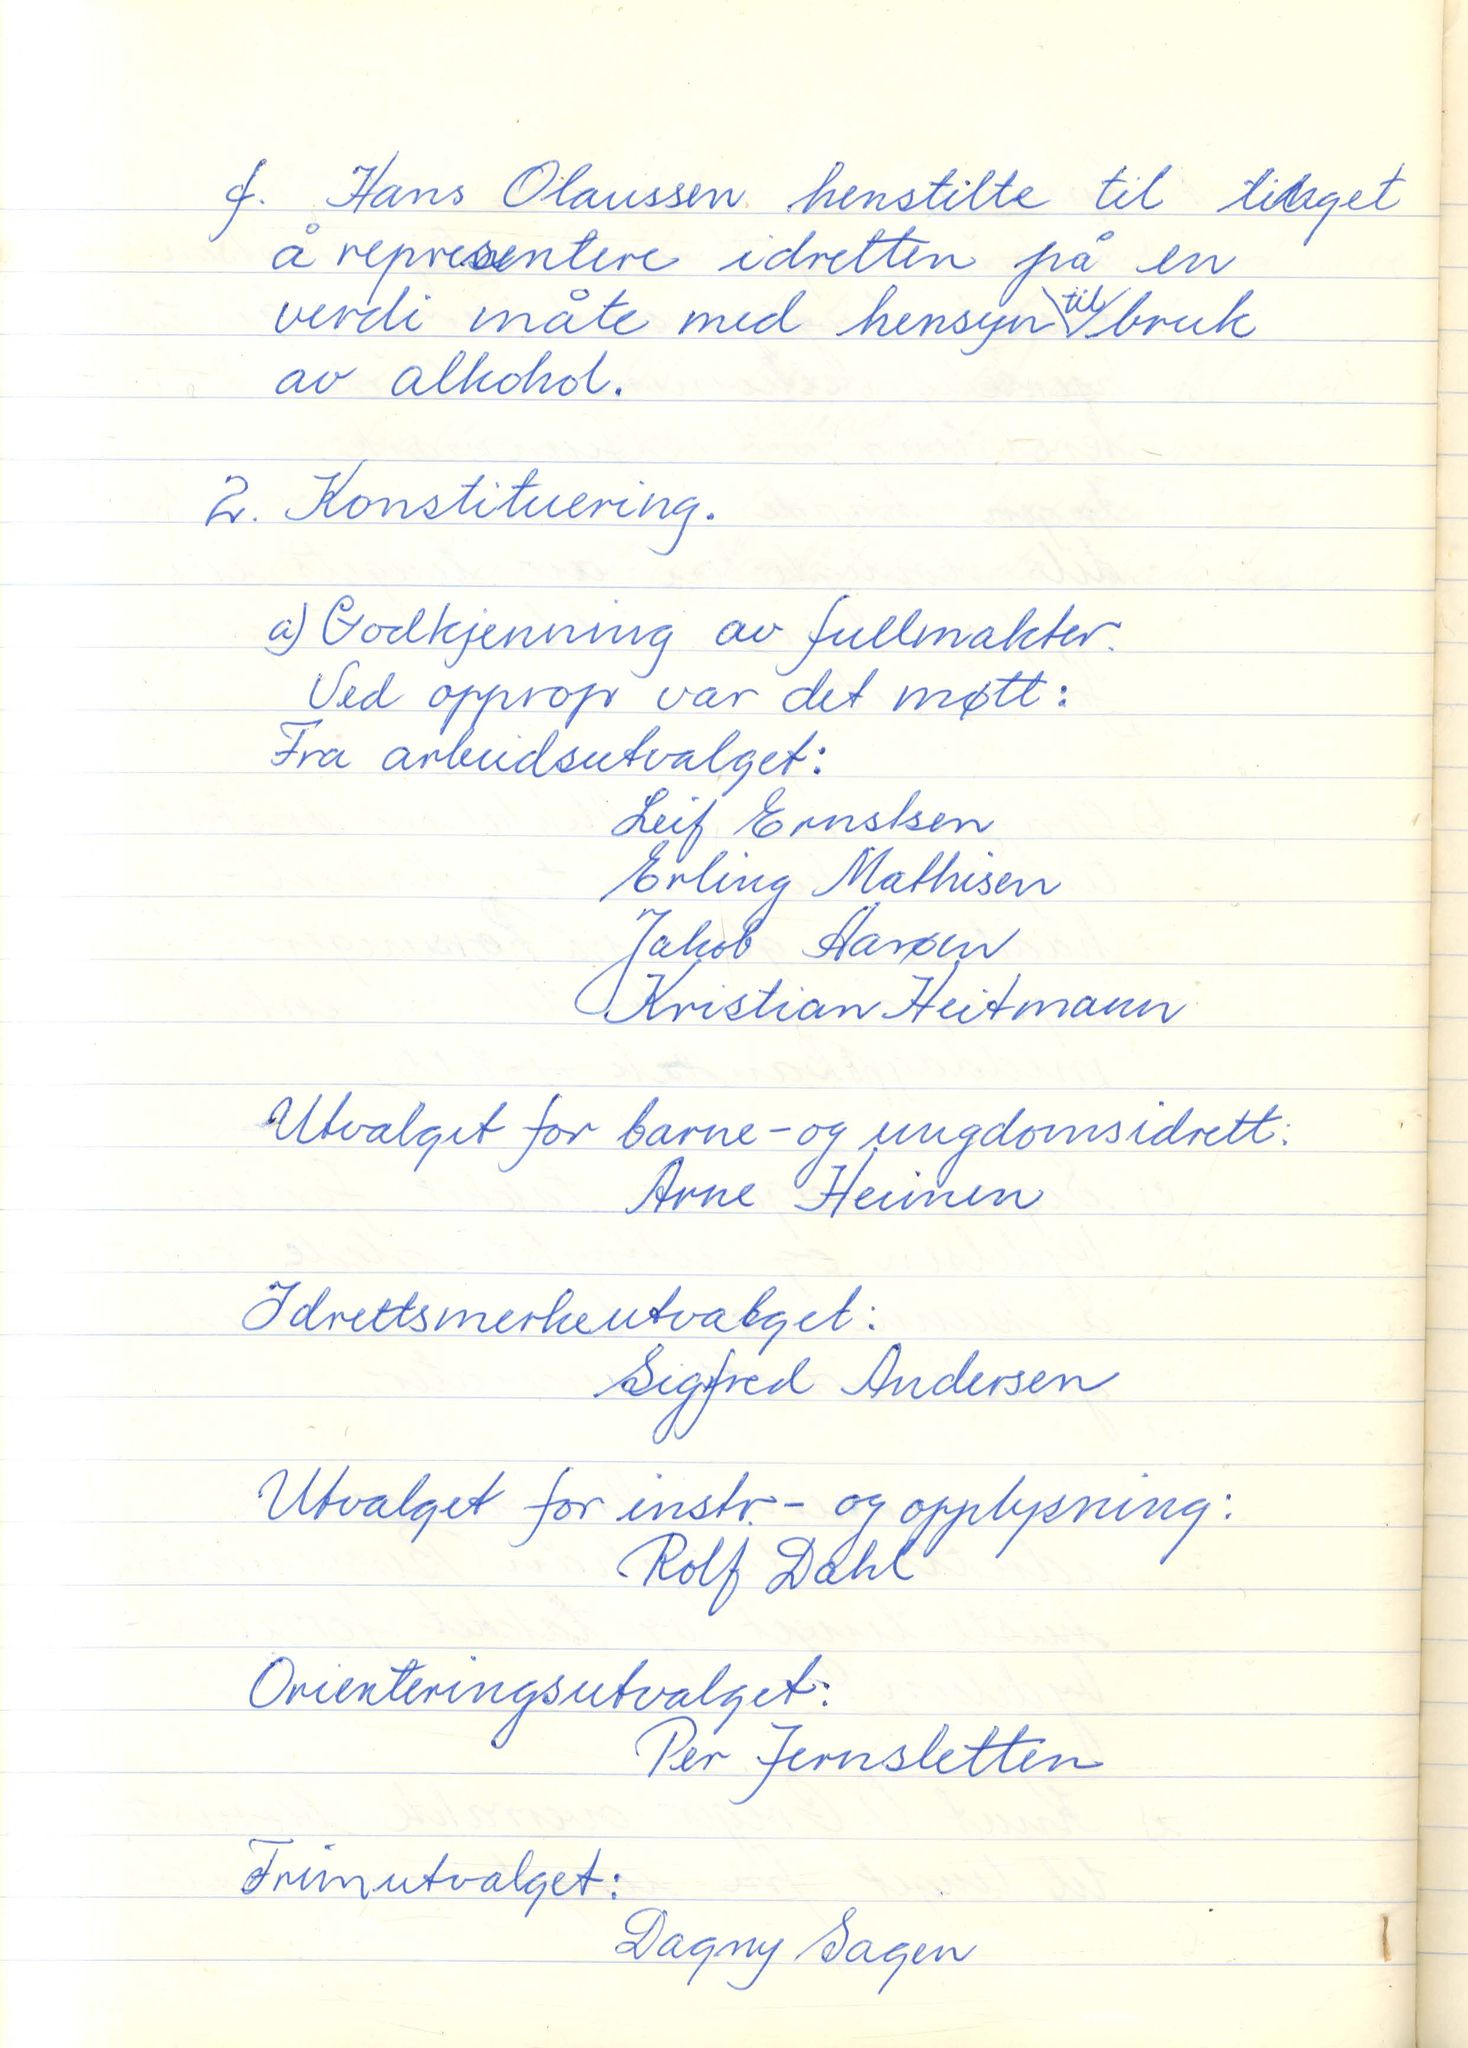 f. Hans Olaussen henstilte til tinget
å representere idretten på en
verdi måte med hensyn til bruk
av alkohol.
2. Konstituering.
a) Godkjenning av fullmakter.
Ved opprop var det møtt:
Fra arbeidsutvalget:
Leif Ernstsen
Erling Mathisen
Jakob
Kristian Heitmann
Utvalget for barne- og ungdomsidrett:
Arne Heimen
Idrettsmerkeutvalget:
Sigfred Andersen
Utvalget for instr.- og opplysning:
Rolf Dahl
Orienteringsutvalget:
Per Jernsletten
Trimutvalget:
Dagny Sagen